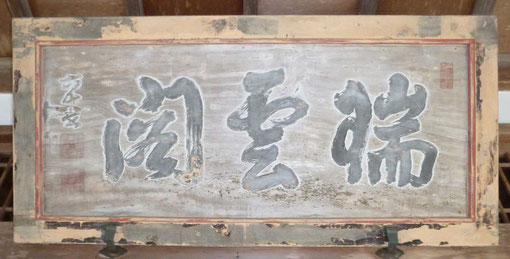 瑞雲閣